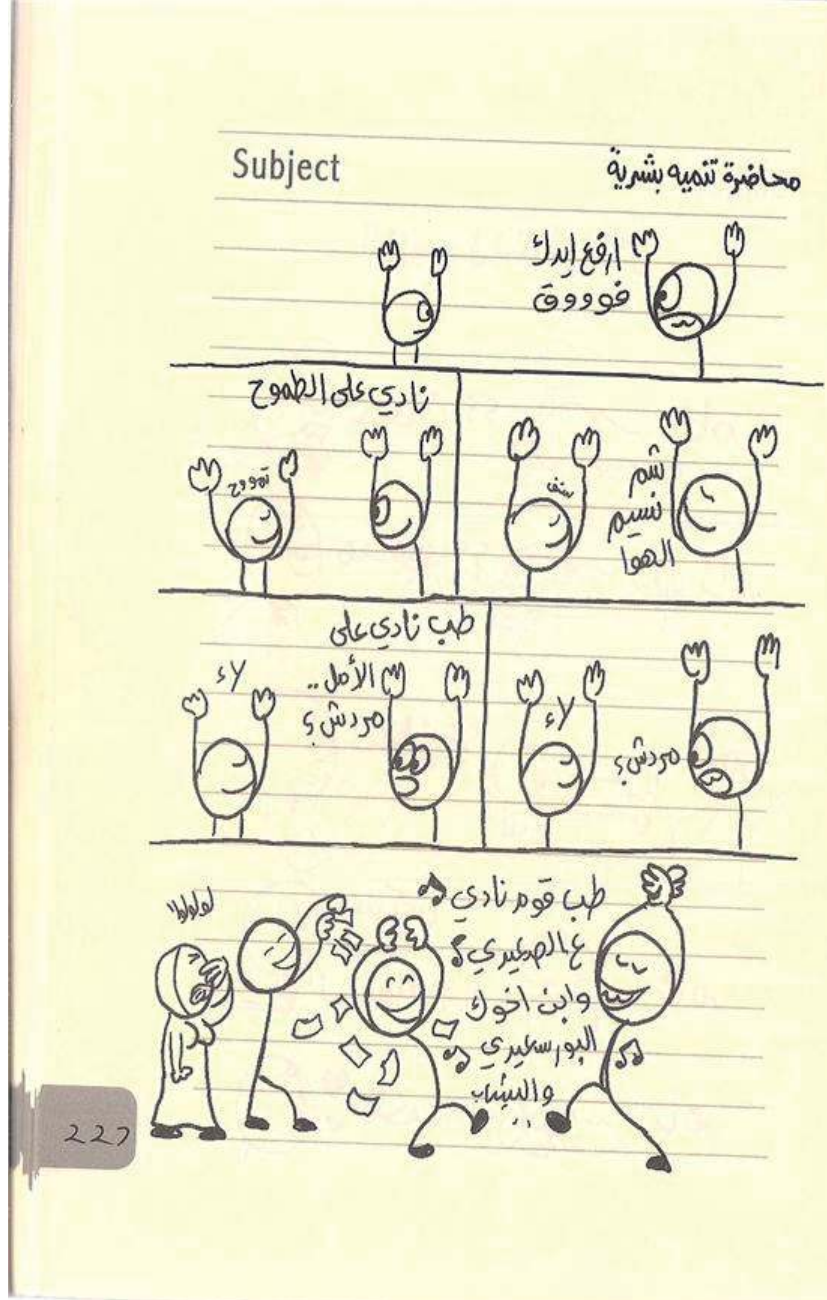 Subject
محاضرة تنميه بشرية
ارفع ايدك
فوووق
شم
نسيم
الهوا
سنف
نادي على الطموح
تمووح
مردش؟
لاء
طب نادي على
الأمل..
مردش؟
لاء
طب قوم نادي
ع الصعيدي
وابن اخوك
البورسعيدي
والشباب
..
لولولولولي
227